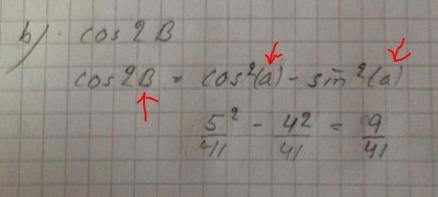 b) cos 2B
cos 2B = cos²(a) - sin²(a)
5²/41 - 42/41 = 9/41